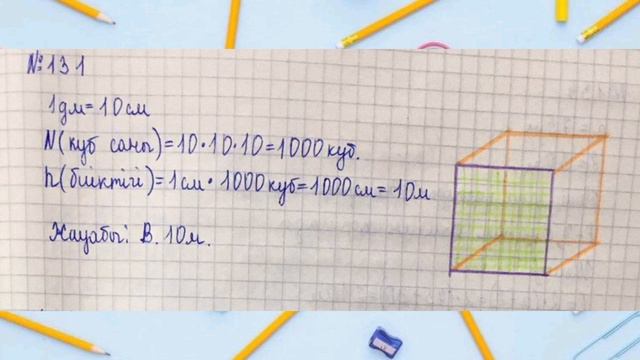 №131
1дм=10см
N(куб саны)=10·10·10=1000куб.
h(биіктігі)=1см·1000куб=1000см=10м
Жауабы: В. 10м.